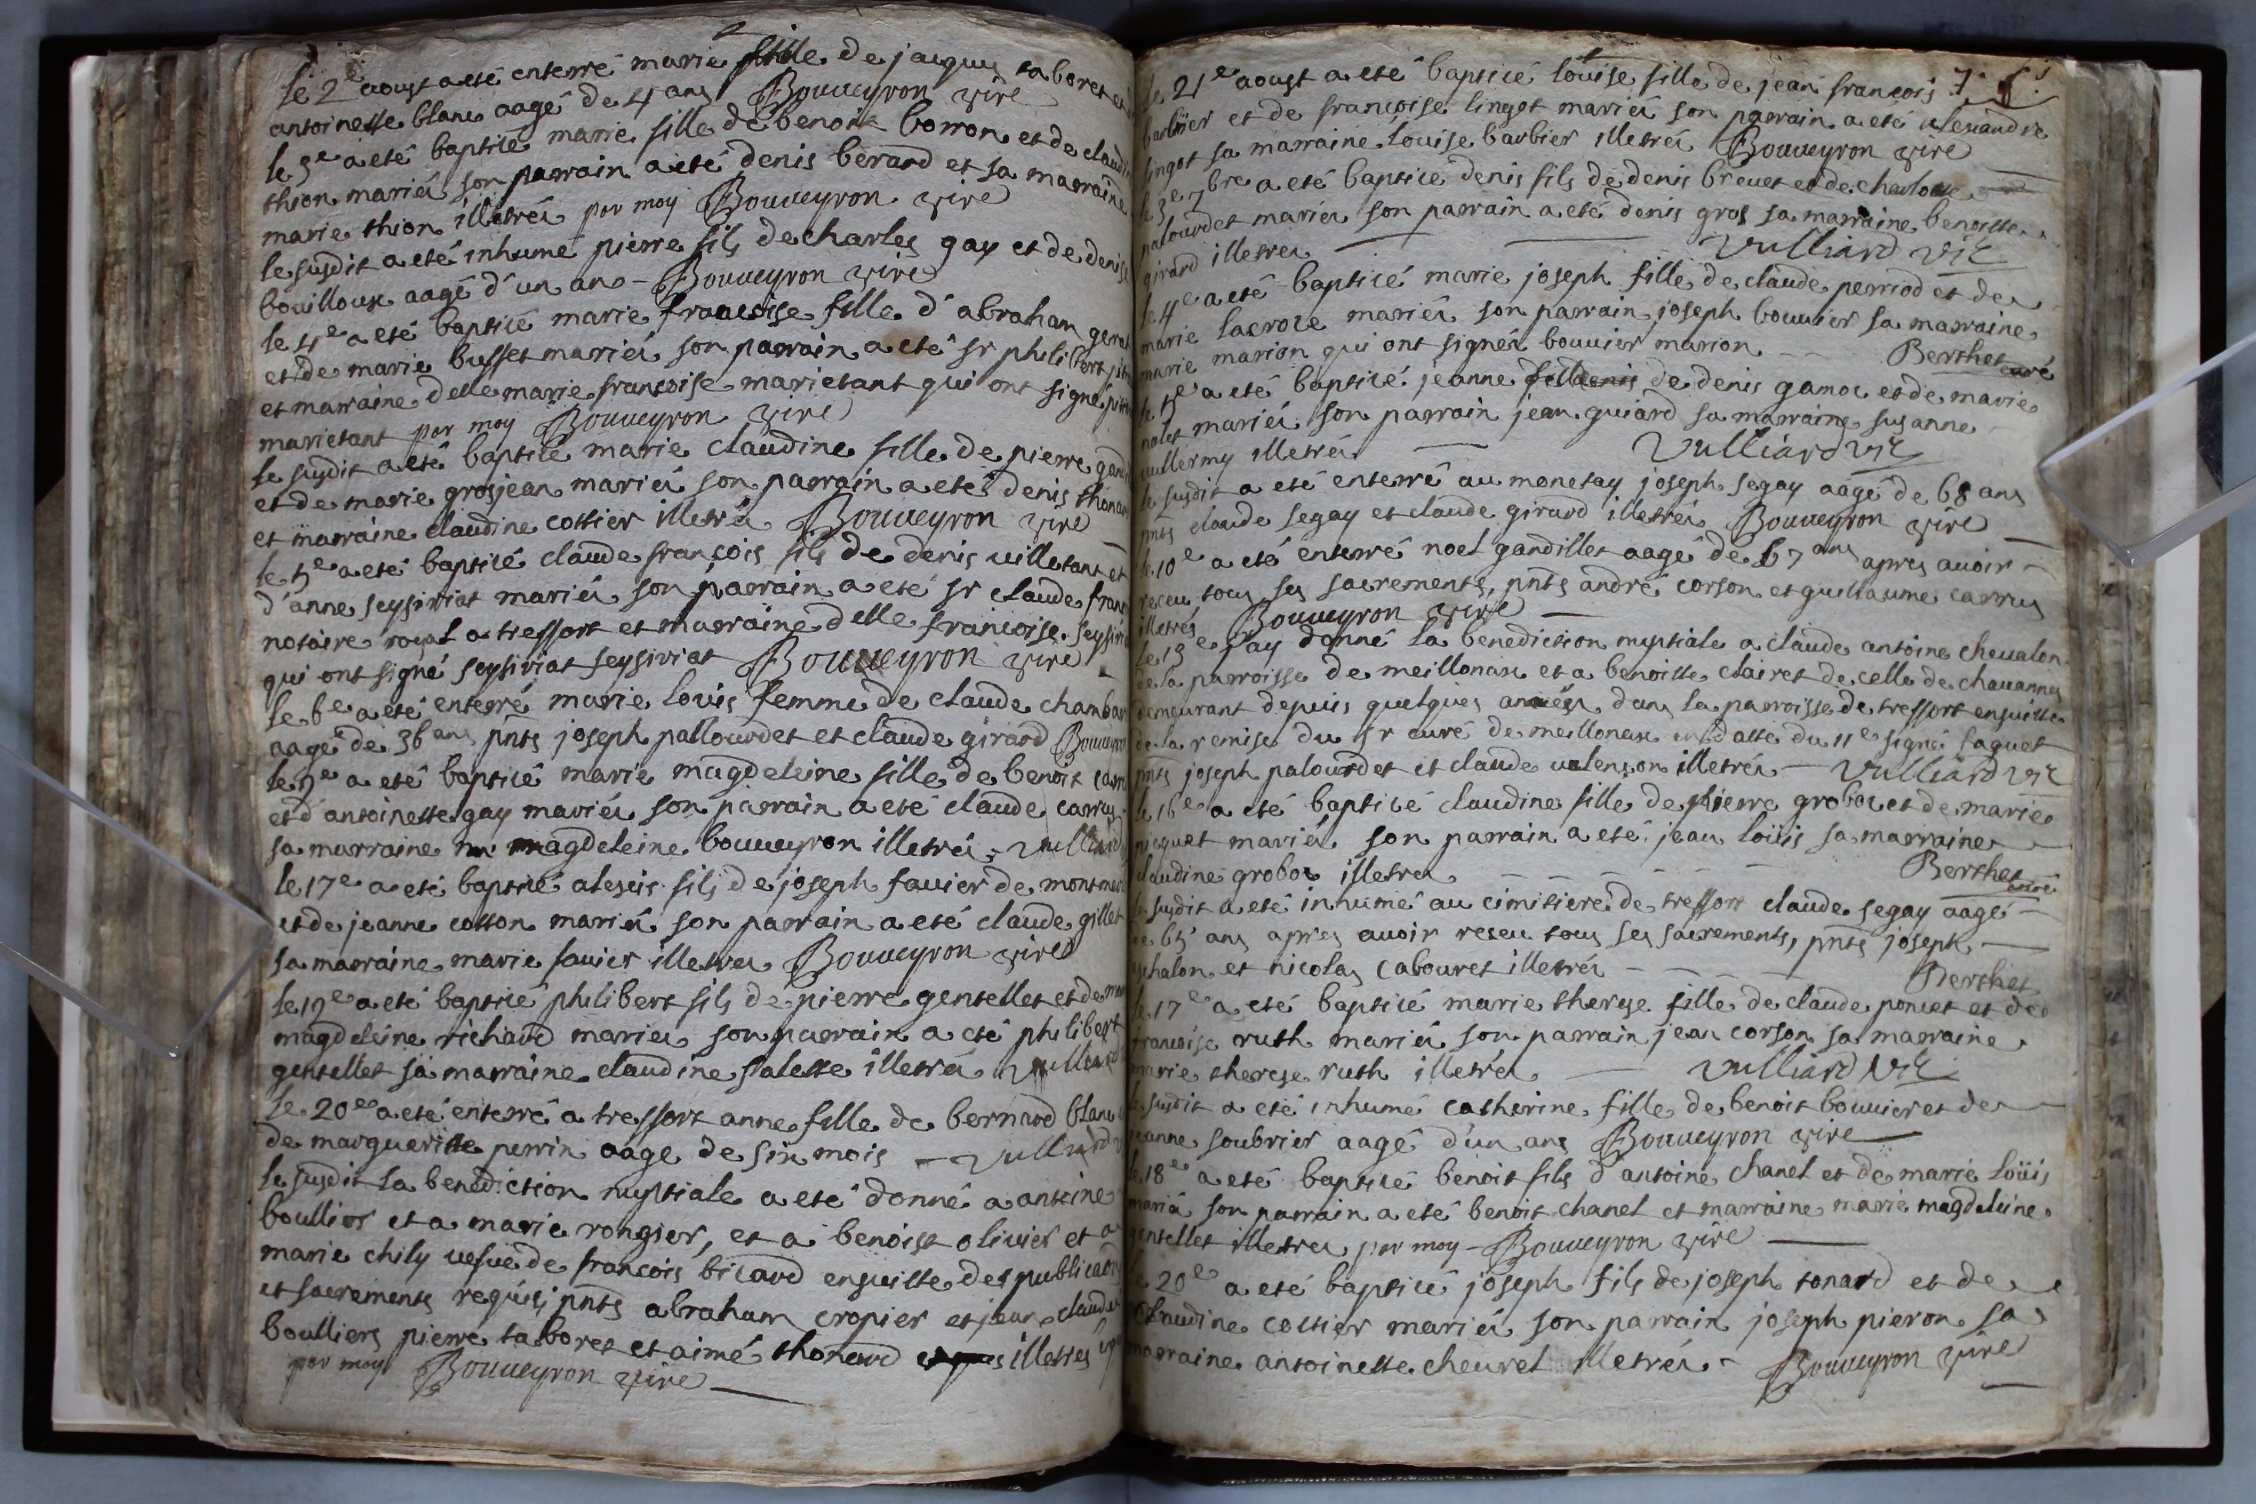 le 2e aoust a eté enterré marie fille de jaques taboret et
antoinette blanc aagé de 4 ans Bouueyron vire
le 3e a eté baptisé marie fille de benoit borron et de claudi
thion mariés son parrain a eté denis berard et sa marraine
marie thion illetrés par moy Bouueyron vire
le susdit a eté inhumé pierre fils de charles gay et de denise
bouilloux aagé d'un ans - Bouueyron vire
le 4e a eté baptisé marie francoise fille d'abraham
et de marie busset mariés son parrain a eté sr philibert
et marraine delle marie francoise marietant qui ont signé
marietant par moy Bouueyron vire
le susdit a eté baptisé marie claudine fille de pierre
et de marie grosjean mariés son parrain a eté denis thonar
et marraine claudine cottier illetrés Bouueyron vire
le 5e a eté baptisé claude françois fils de denis villetant et
d'anne seysiriat mariés son parrain a eté sr claude fran
notaire royal a treffort et marraine delle francoise seysiri
qui ont signé seysiriat seysiriat Bouueyron vire
le 6e a eté enterré marie louis femme de claude chambar
aagé de 36 ans pnts joseph pallourdet et claude girard Bouueyron
le 9e a eté baptisé marie magdeleine fille de benoit carr
et d'antoinette gay mariés son parrain a eté claude carrus
sa marraine magdeleine bouueyron illetrés - vulliard
le 17e a eté baptisé alexis fils de joseph fauier de montmer
et de jeanne cotton mariés son parrain a eté claude gillet
sa marraine marie fauier illetrés Bouueyron vire
le 19e a eté baptisé philibert fils de pierre gentellet et de mar
magdeleine richard mariés son parrain a eté philibert
gentellet sa marraine claudine falette illetrés vulliard
le 20e a eté enterré a treffort anne fille de bernard blanc
de marguerite perrin aagé de six mois - vulliard
le susdit la benediction nuptiale a eté donné a antoine
boullier et a marie rongier, et a benoist oliuier et a
marie chily vefue de francois bicard ensuitte des publicaons
et sacrements requis, pnts abraham cropier et jean claude
boulliers pierre taboret et aimé thonard illetres
par moy Bouueyron vire
le 21e aoust a eté baptisé louise fille de jean francois
barbier et de francoise lingot mariés son parrain a eté alexandre
lingot sa marraine louise barbier illetrés Bouueyron vire
le 3e 7bre a eté baptisé denis fils de denis breuet et de charlotte
palourdet mariés son parrain a eté denis gros sa marraine benoitte
girard illetrés vulliard vic
le 4e a eté baptisé marie joseph fille de claude perriod et de
marie lacroix mariés son parrain joseph bouuier sa marraine
marie marion qui ont signés bouuier marion Berthet curé
le 5e a eté baptisé jeanne de denis ganoz et de marie
nalet mariés son parrain jean guiard sa marraine susanne
vullermy illetrés vulliard vic
le susdit a eté enterré au monetay joseph segay aagé de 68 ans
pnts claude segay et claude girard illetrés Bouueyron vire
le 10e a eté enterré noel gandillet aagé de 67 ans apres auoir
receu tous ses sacrements, pnts andré corson et guillaume carrus
illetrés Bouueyron vire
le 13e j'ay donné la benediction nuptiale a claude antoine cheualon
de la parroisse de meillonax et a benoitte clairet de celle de chauannes
demeurant depuis quelques années dans la parroisse de treffort ensuitte
de la remise du sr curé de meillonax en datte du 11e signé saguet
pnts joseph palourdet et claude valenson illetrés - vulliard vic
le 16e a eté baptisé claudine fille de pierre groboz et de marie
picquet mariés son parrain a eté jean loüis sa marraine
claudine groboz illetrés Berthet curé
le susdit a eté inhumé au cimitiere de treffort claude segay aagé
de 65 ans apres auoir receu tous ses sacrements, pnts joseph
chalon et nicolas cabouret illetrés Berthet
le 17e a eté baptisé marie therese fille de claude poncet et de
francoise ruth mariés son parrain jean corson sa marraine
marie therese ruth illetrés vulliard vic
le susdit a eté inhumé catherine fille de benoit bouuier et de
jeanne soubrier aagé d'un ans Bouueyron vire
le 18e a eté baptisé benoit fils d'antoine chanel et de marie loüis
mariés son parrain a eté benoit chanel et marraine marie magdeleine
gentellet illetrés par moy - Bouueyron vire
le 20e a eté baptisé joseph fils de joseph tonard et de
claudine cottier mariés son parrain joseph pieron sa
marraine antoinette cheurel illetrés - Bouueyron vire